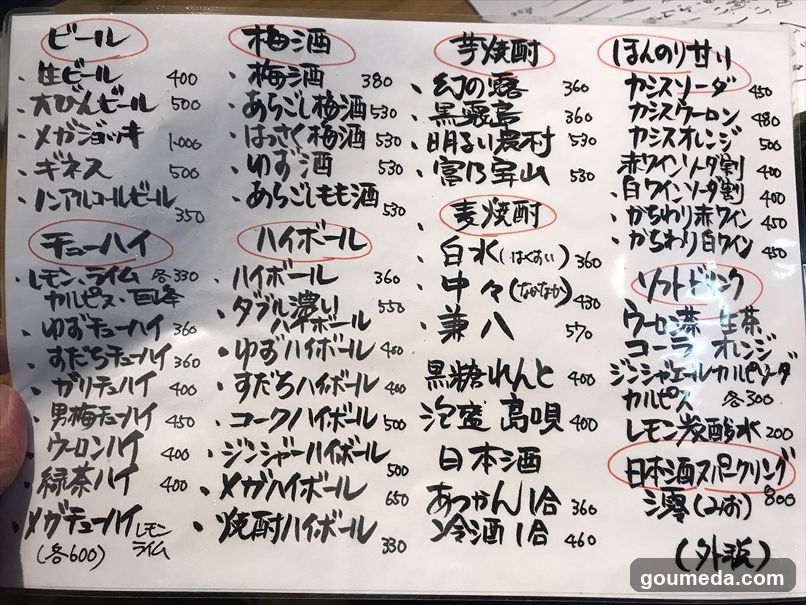 ビール
・生ビール 400
・大びんビール 500
・メガジョッキ 1.000
・ギネス 500
・ノンアルコールビール
350
チューハイ
・レモン、ライム 各330
カルピス、巨峰
・ゆずチューハイ 360
・すだちチューハイ 360
・ガリチューハイ 400
・男梅チューハイ 450
・ウーロンハイ 400
・緑茶ハイ 400
・メガチューハイ レモン
(各600) ライム
梅酒
・梅酒 380
・あらごし梅酒 530
・はっさく梅酒 530
・ゆず酒 530
・あらごしもも酒
530
ハイボール
・ハイボール 360
・ダブル濃い 550
ハイボール
・ゆずハイボール 400
・すだちハイボール 400
・コークハイボール 500
・ジンジャーハイボール
500
・メガハイボール 650
・焼酎ハイボール
330
芋焼酎
・幻の露 360
・黒霧島 360
・明るい農村 530
・富乃宝山 530
麦焼酎
・白水(はくすい) 360
・中々(なかなか) 430
・兼八 570
黒糖れんと 400
泡盛 島唄 400
日本酒
あつかん1合 360
冷酒1合 460
ほんのり甘い
カシスソーダ 450
カシスウーロン 480
カシスオレンジ 500
赤ワインソーダ割 400
・白ワインソーダ割 400
・かちわり赤ワイン 450
・かちわり白ワイン 450
ソフトドリンク
ウーロン茶 生茶
コーラ オレンジ
ジンジャエール カルピソーダ
カルピス 各300
レモン炭酸水 200
日本酒スパークリング
澪(みお) 800
(外税)
goumeda.com